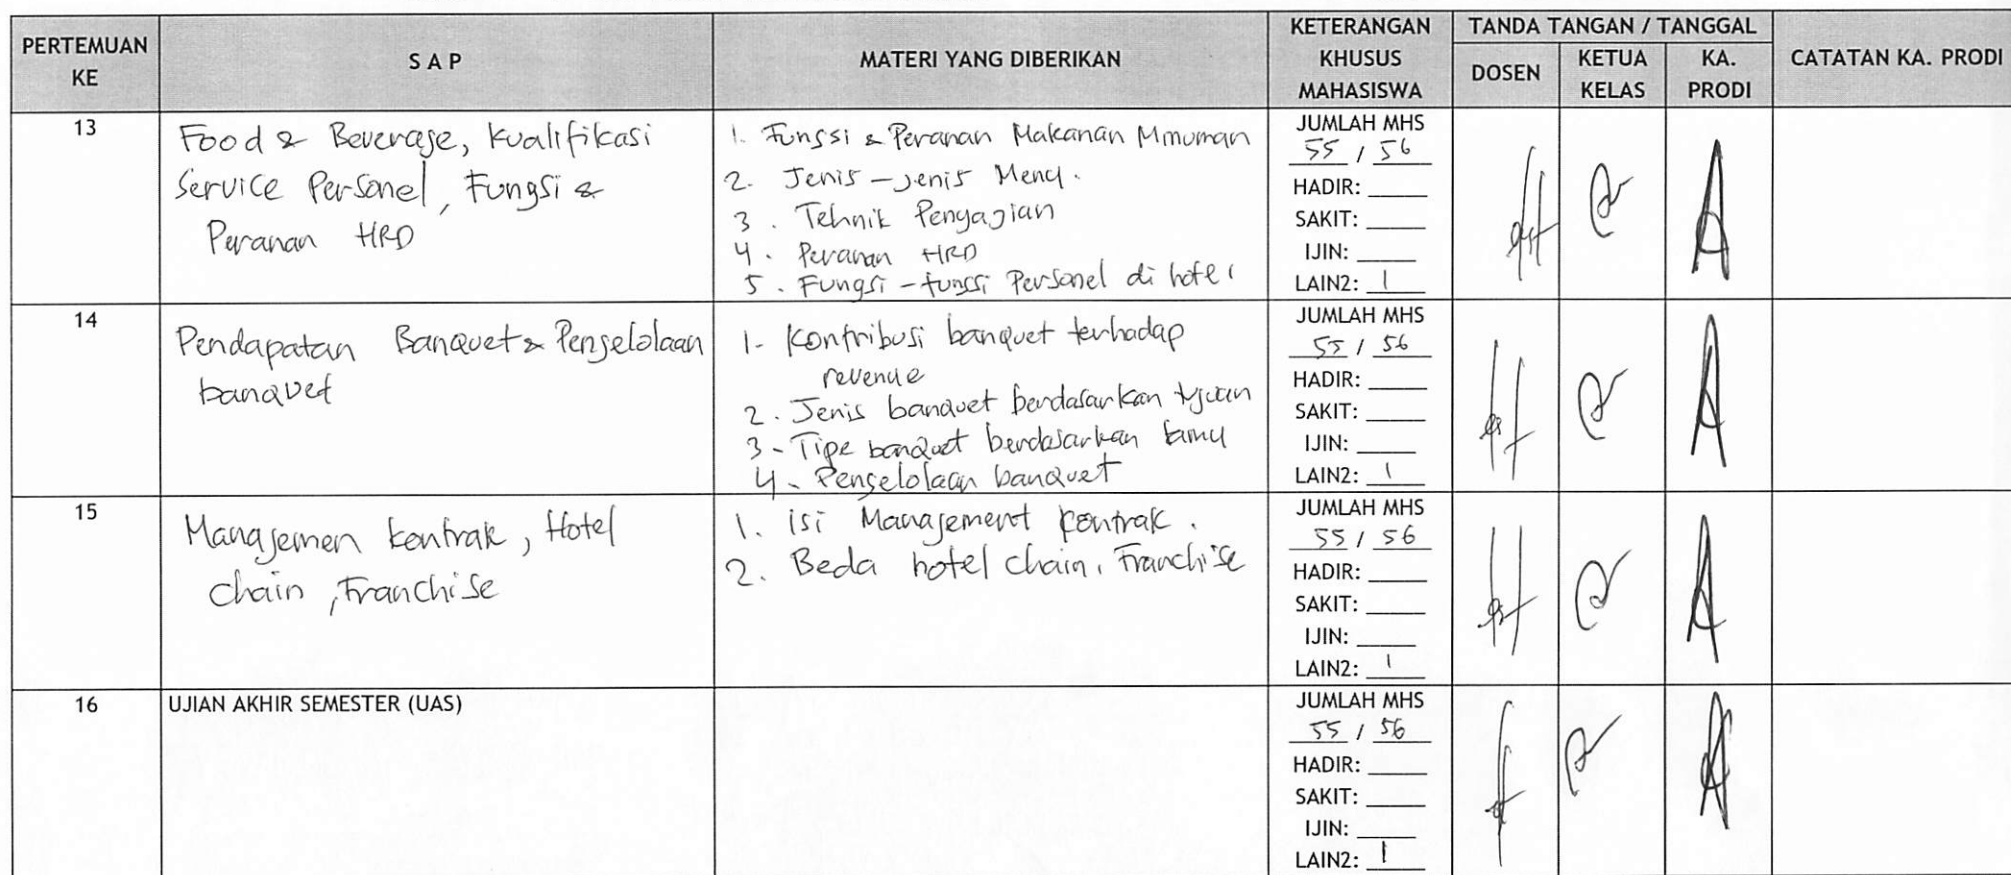 PERTEMUAN KE
S A P
MATERI YANG DIBERIKAN
KETERANGAN KHUSUS MAHASISWA
TANDA TANGAN / TANGGAL
DOSEN
KETUA KELAS
KA. PRODI
CATATAN KA. PRODI
13
Food & Beverage, Kualifikasi
Service Personel, Fungsi &
Peranan HRD
1. Fungsi & Peranan Makanan Minuman
2. Jenis - jenis Menu.
3. Tehnik Penyajian
4. Peranan HRD
5. Fungsi - fungsi Personel di hotel
JUMLAH MHS
55 / 56
HADIR:
SAKIT:
IJIN:
LAIN2: 1
14
Pendapatan Banquet & Pengelolaan
banquet
1. Kontribusi banquet terhadap
revenue
2. Jenis banquet berdasarkan tujuan
3. Tipe banquet berdasarkan tamu
4. Pengelolaan banquet
JUMLAH MHS
55 / 56
HADIR:
SAKIT:
IJIN:
LAIN2: 1
15
Managemen kontrak, Hotel
chain, Franchise
1. isi Management kontrak.
2. Beda hotel chain, Franchise
JUMLAH MHS
55 / 56
HADIR:
SAKIT:
IJIN:
LAIN2: 1
16
UJIAN AKHIR SEMESTER (UAS)
JUMLAH MHS
55 / 56
HADIR:
SAKIT:
IJIN:
LAIN2: 1